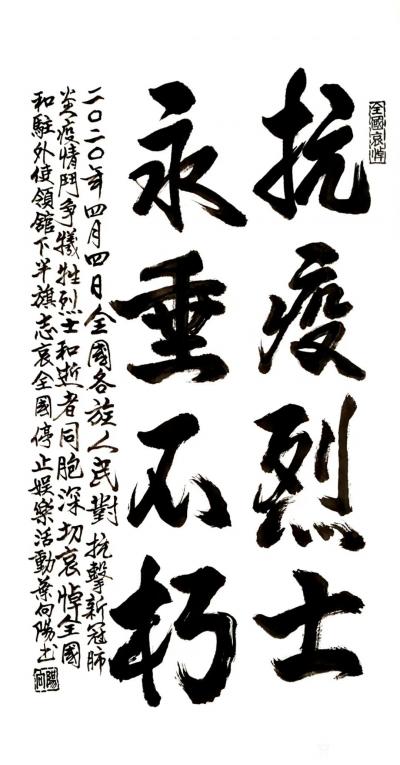 全國哀悼
抗疫烈士
永垂不朽
二〇二〇年四月四日全國各族人民對抗擊新冠肺
炎疫情鬥争犧牲烈士和逝者同胞深切哀悼全國
和駐外使領館下半旗志哀全國停止娱樂活動葉向陽书